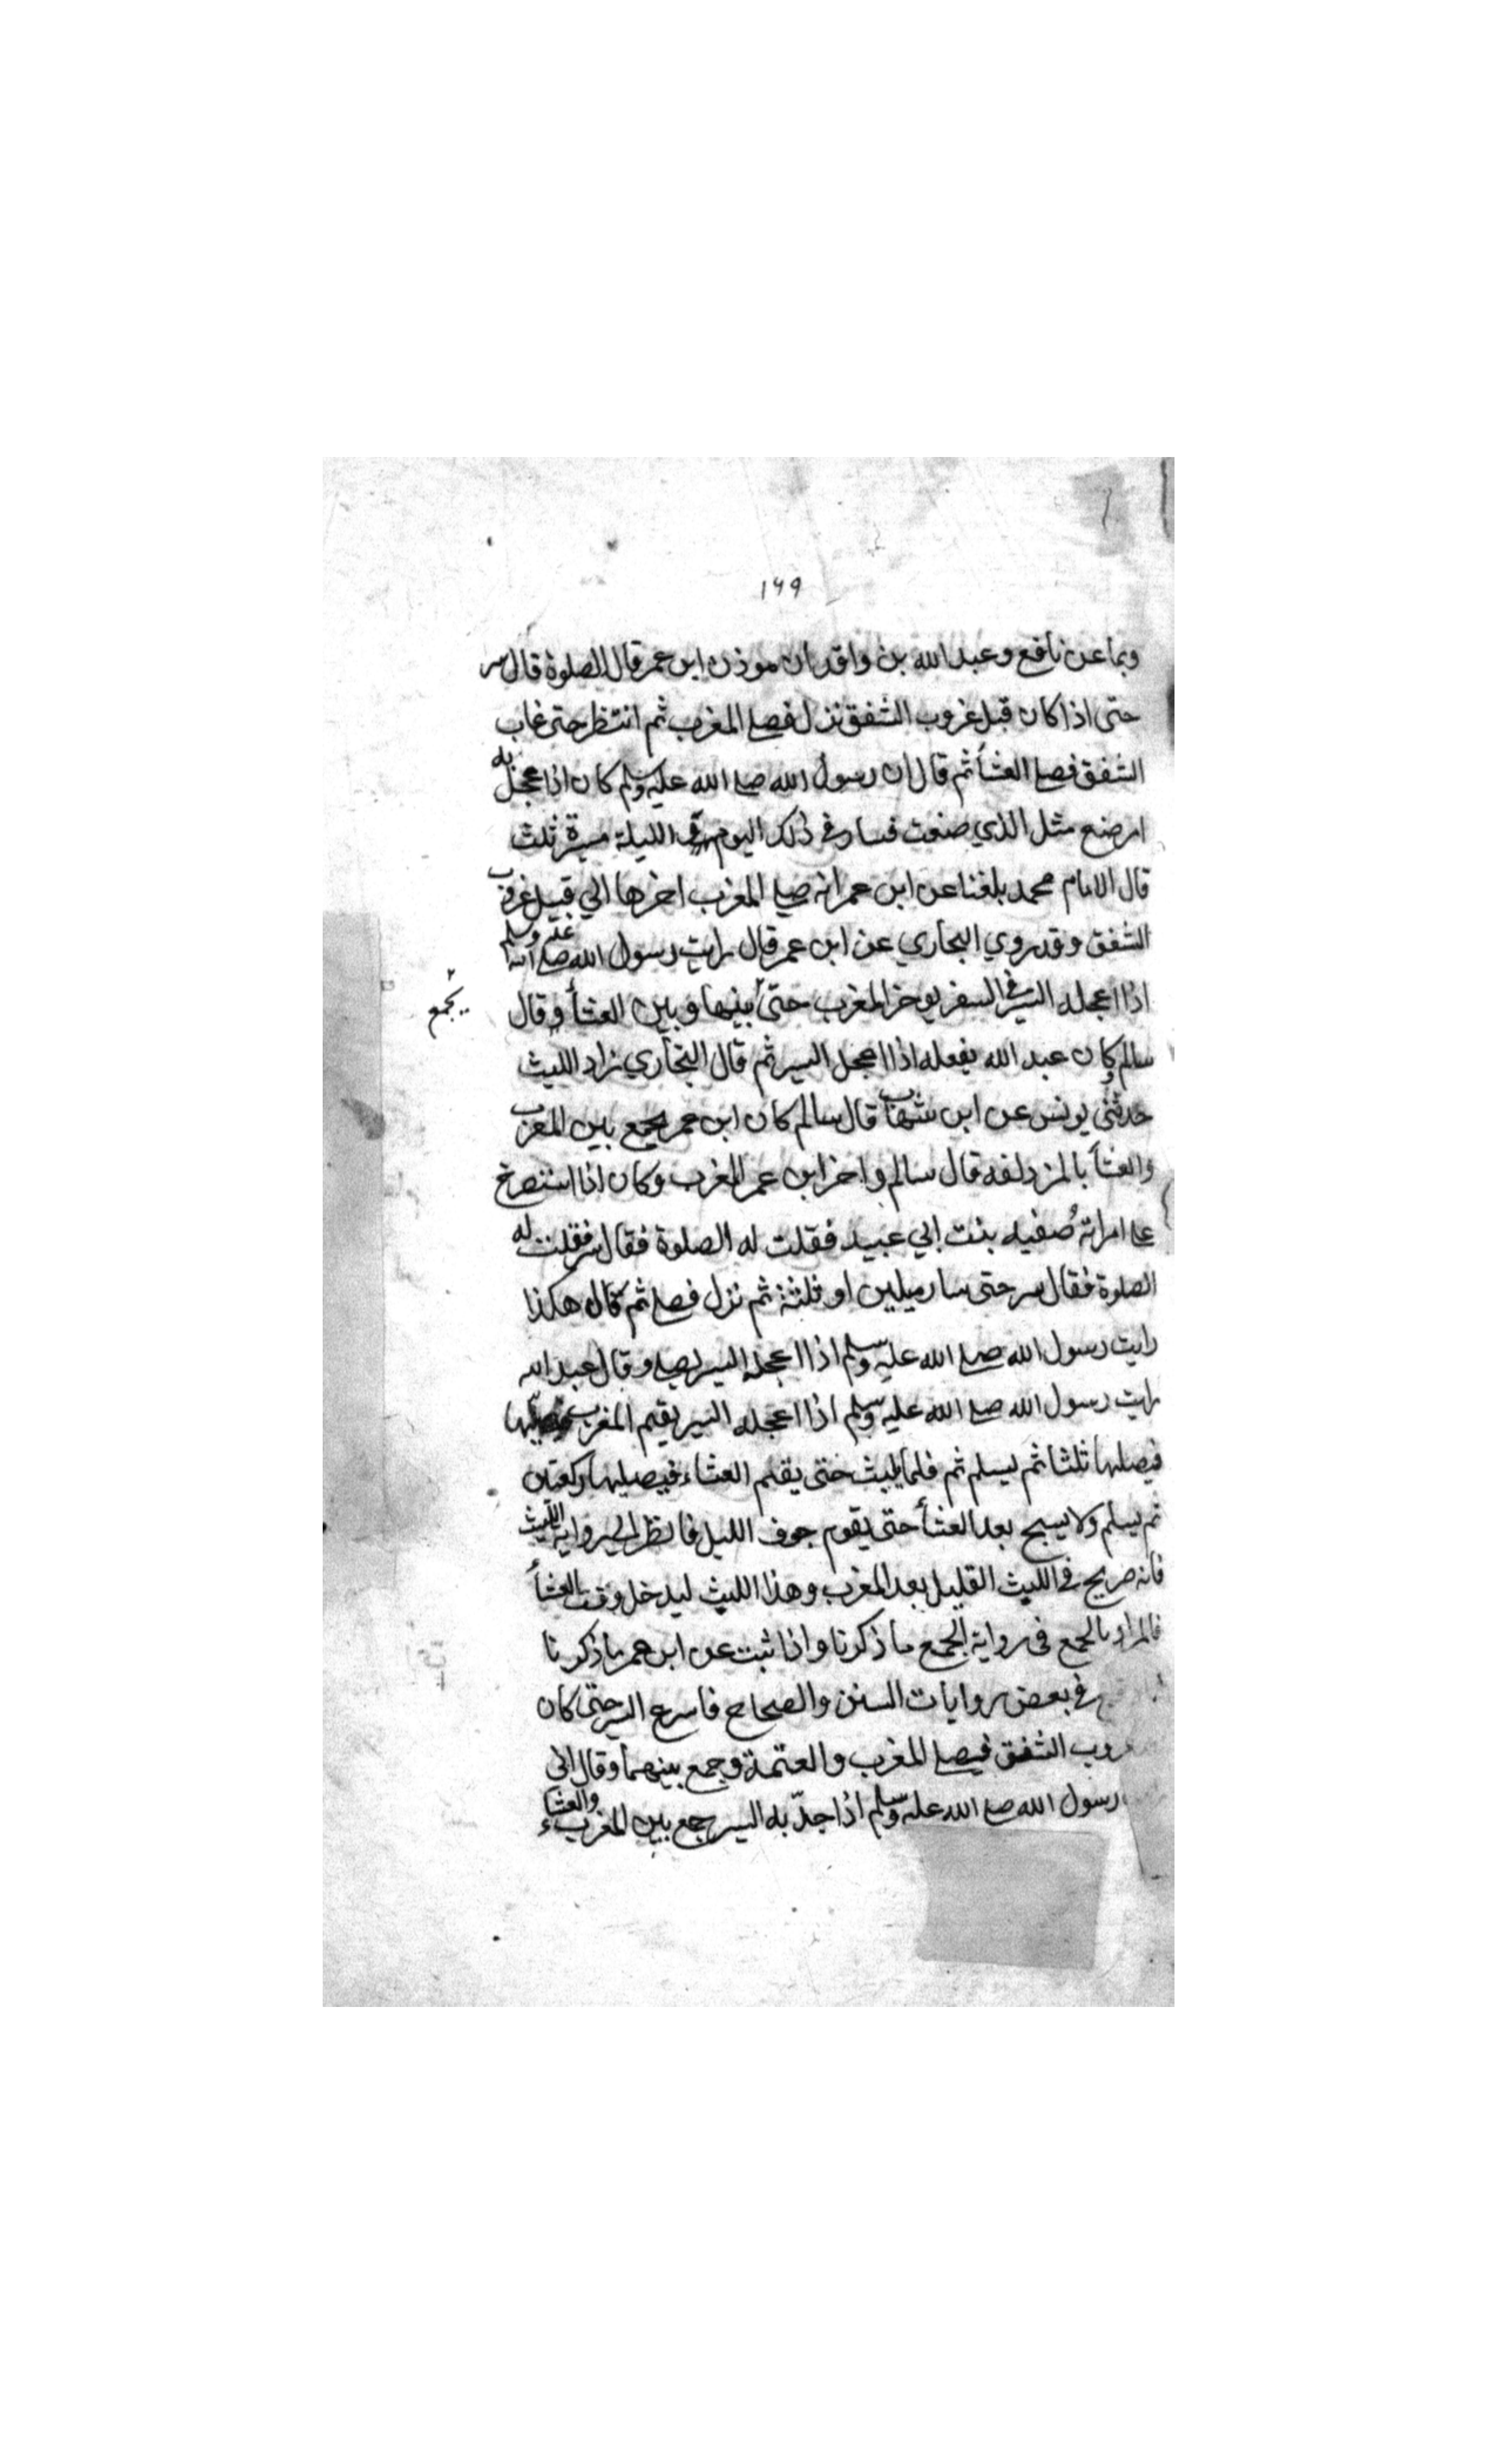 ١٦٩
وبما عن نافع وعبد الله بن واقد ان موذن ابن عمر قال الصلوة قال سر
حتى اذا كان قبل غروب الشفق نزل فصلى المغرب ثم انتظر حتى غاب
الشفق فصلى العشأ ثم قال ان رسول الله صلى الله عليه وسلم كان اذا عجل به
امر صنع مثل الذي صنعت فسار في ذلك اليوم والليلة مسيرة ثلث
قال الامام محمد بلغنا عن ابن عمر انه صلى المغرب اخرها الي قبيل غروب
الشفق وقد روي البخاري عن ابن عمر قال رايت رسول الله صلى الله عليه وسلم
اذا اعجله السير في السفر يوخر المغرب حتى بينها وبين العشأ وقال
يجمع
سالم وكان عبد الله يفعله اذا اعجل السير ثم قال البخاري زاد الليث
حدثني يونس عن ابن شهاب قال سالم كان ابن عمر يجمع بين المغرب
والعشأ بالمزدلفه قال سالم واخر ابن عمر المغرب وكان اذا استصرخ
على امراته صفيه بنت ابي عبيد فقلت له الصلوة فقال سر فقلت له
الصلوة فقال سر حتى سار ميلين او ثلثة ثم نزل فصلى ثم قال هكذا
رايت رسول الله صلى الله عليه وسلم اذا اعجله السير يصلي وقال عبد الله
رايت رسول الله صلى الله عليه وسلم اذا اعجله السير يقيم المغرب
فيصليها ثلثا ثم يسلم ثم فلما يلبث حتى يقيم العشاء فيصليها ركعتين
ثم يسلم ولا يسبح بعد العشأ حتى يقوم جوف الليل فانظر الي رواية الليث
فانه صريح في اللبث القليل بعد المغرب وهذا اللبث ليدخل وقت العشأ
فالمراد بالجمع في رواية الجمع ما ذكرنا واذا ثبت عن ابن عمر ما ذكرنا
في بعض روايات السنن والصحاح فاسرع السير حتى كان
غروب الشفق فيصلى المغرب والعتمة وجمع بينهما وقال اني
رسول الله صلى الله عليه وسلم اذا جدّ به السير جمع بين المغرب والعشاء